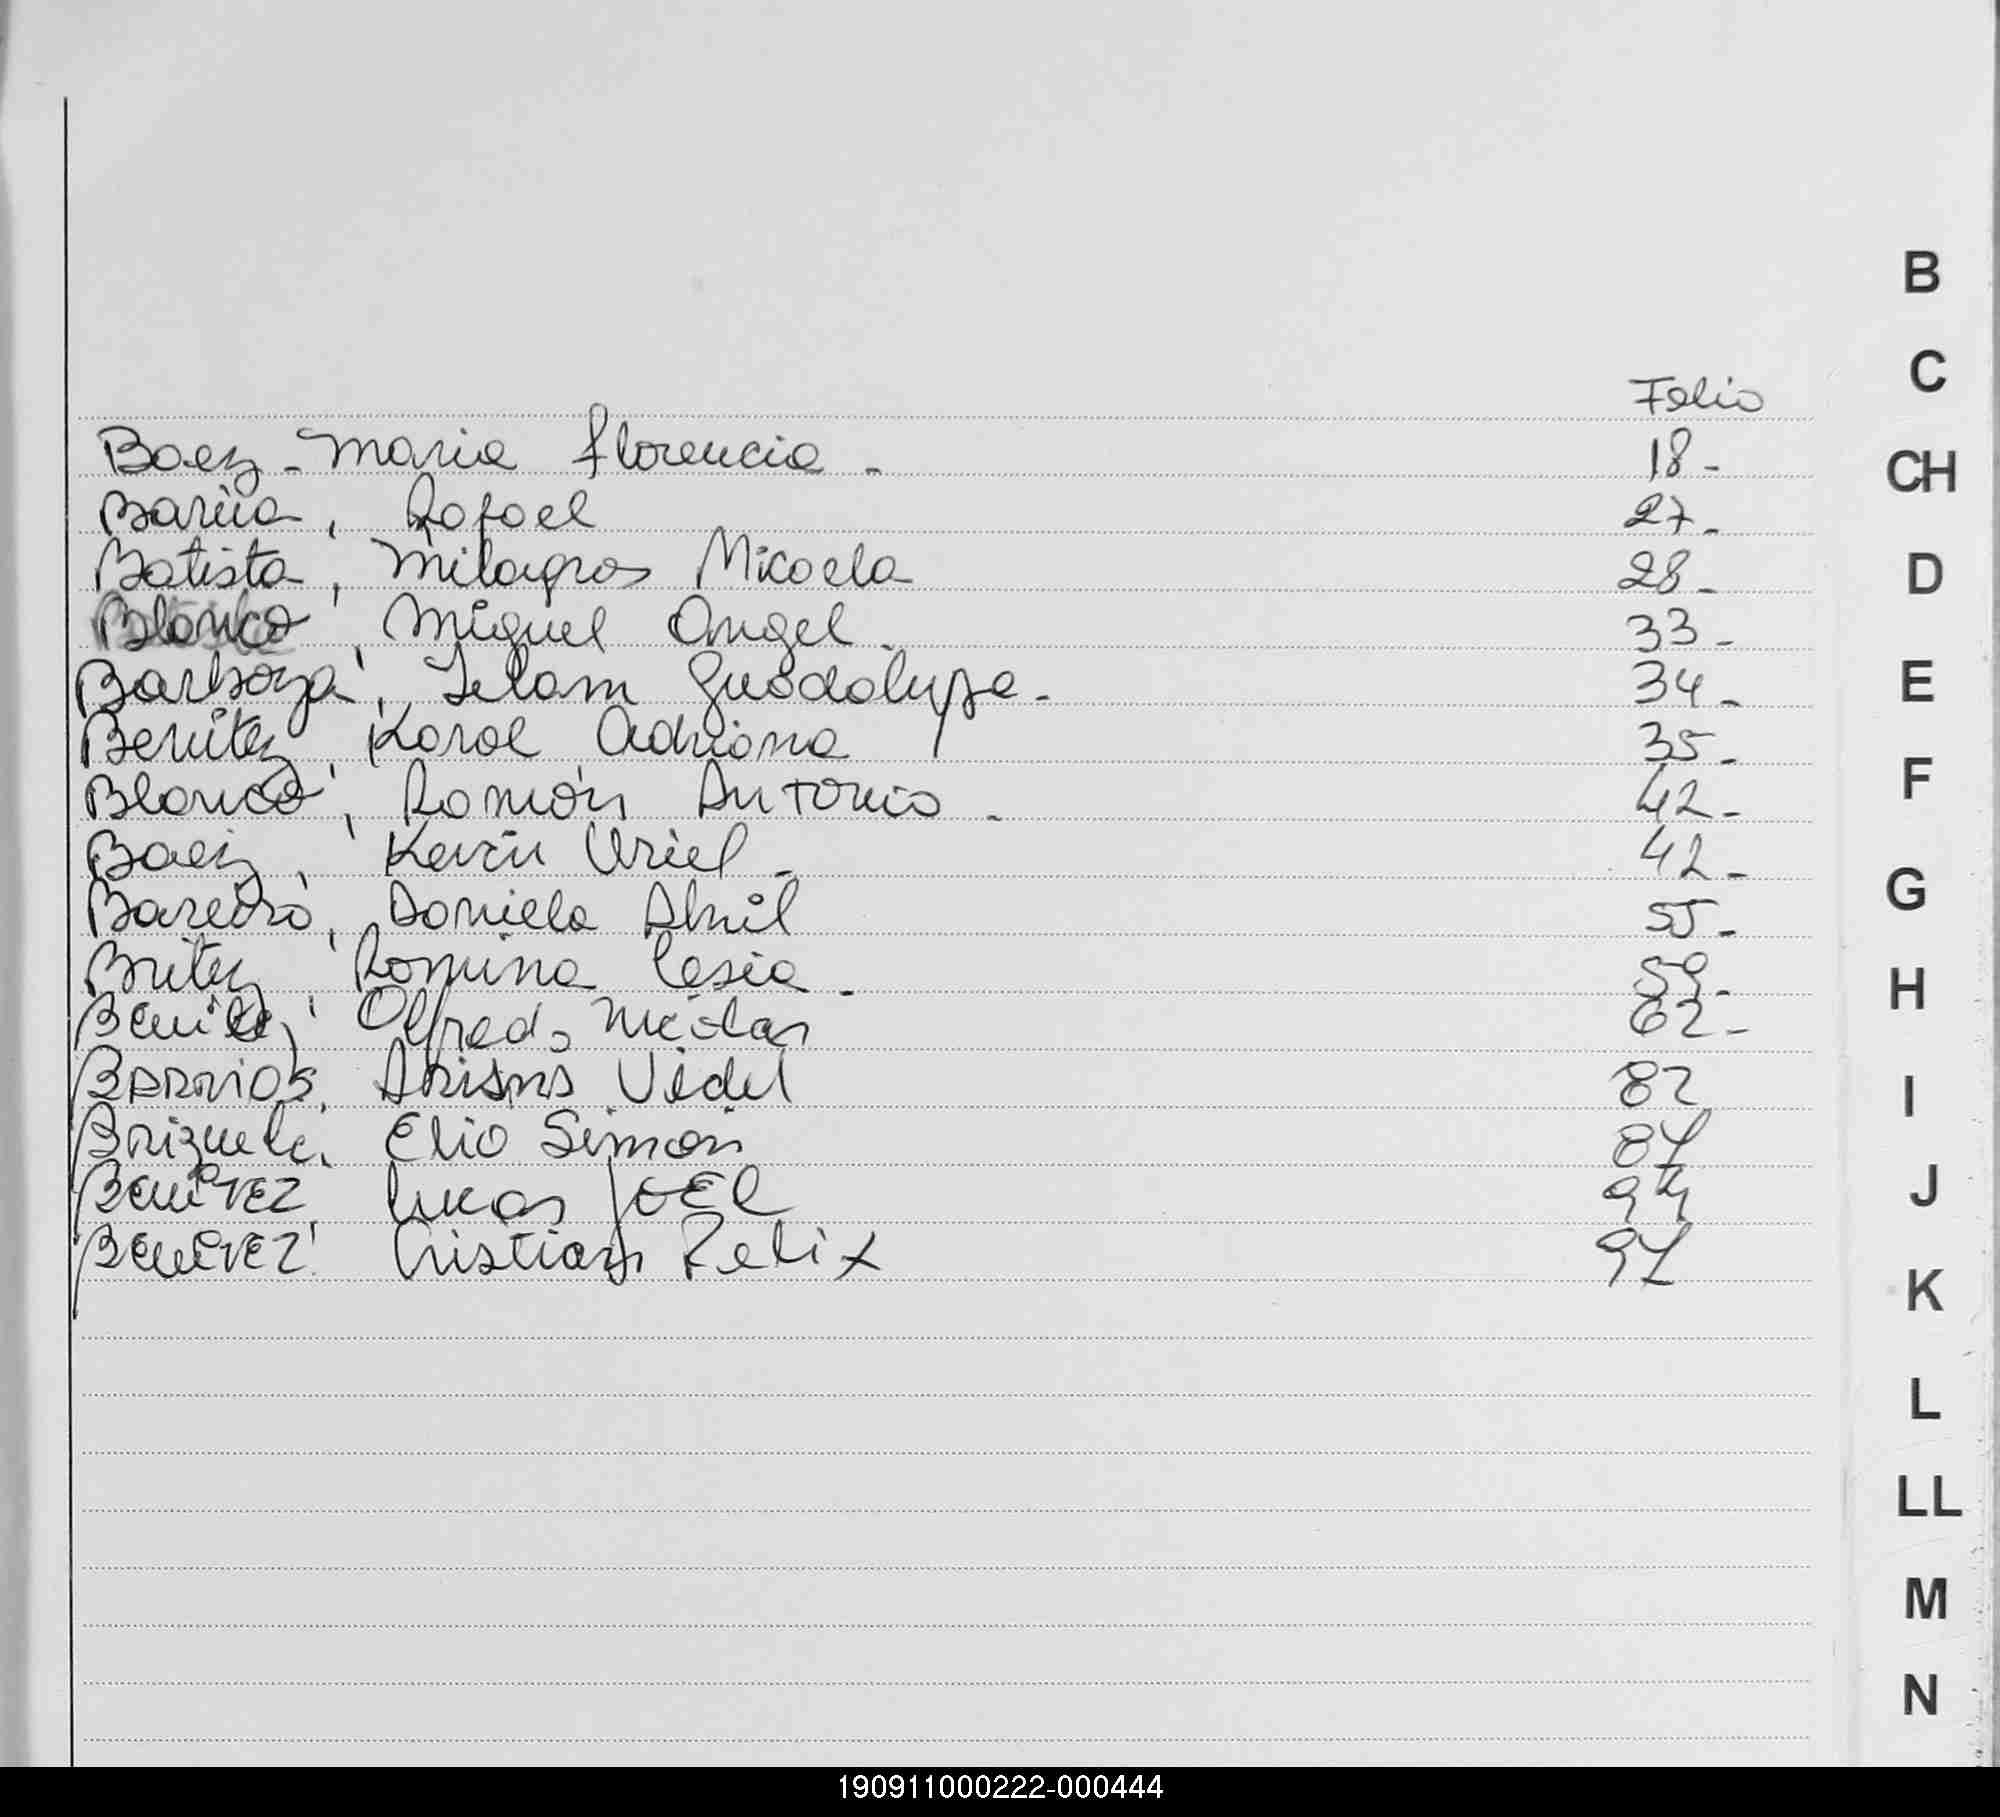 Folio
Baez - Maria Florencia - 18 -
Rafael 27 -
Batista, Milagros Micaela 28 -
Blanco, Miguel Angel 33 -
Barboza, Guadalupe - 34 -
Benitez, Karol Adriana 35 -
Blanco, Ramón Antonio - 42 -
Baez, Kevin Uriel - 42 -
Bareiro, Daniela Abril 55 -
Britez, Romina Cesia - 59 -
Benitez, Alfredo Nicolas 62 -
Barrios, Vidal 82
Brizuela, Elio Simon 84
Benitez, Lucas Joel 94
Benitez, Cristian Felix 94
B
C
CH
D
E
F
G
H
I
J
K
L
LL
M
N
190911000222-000444